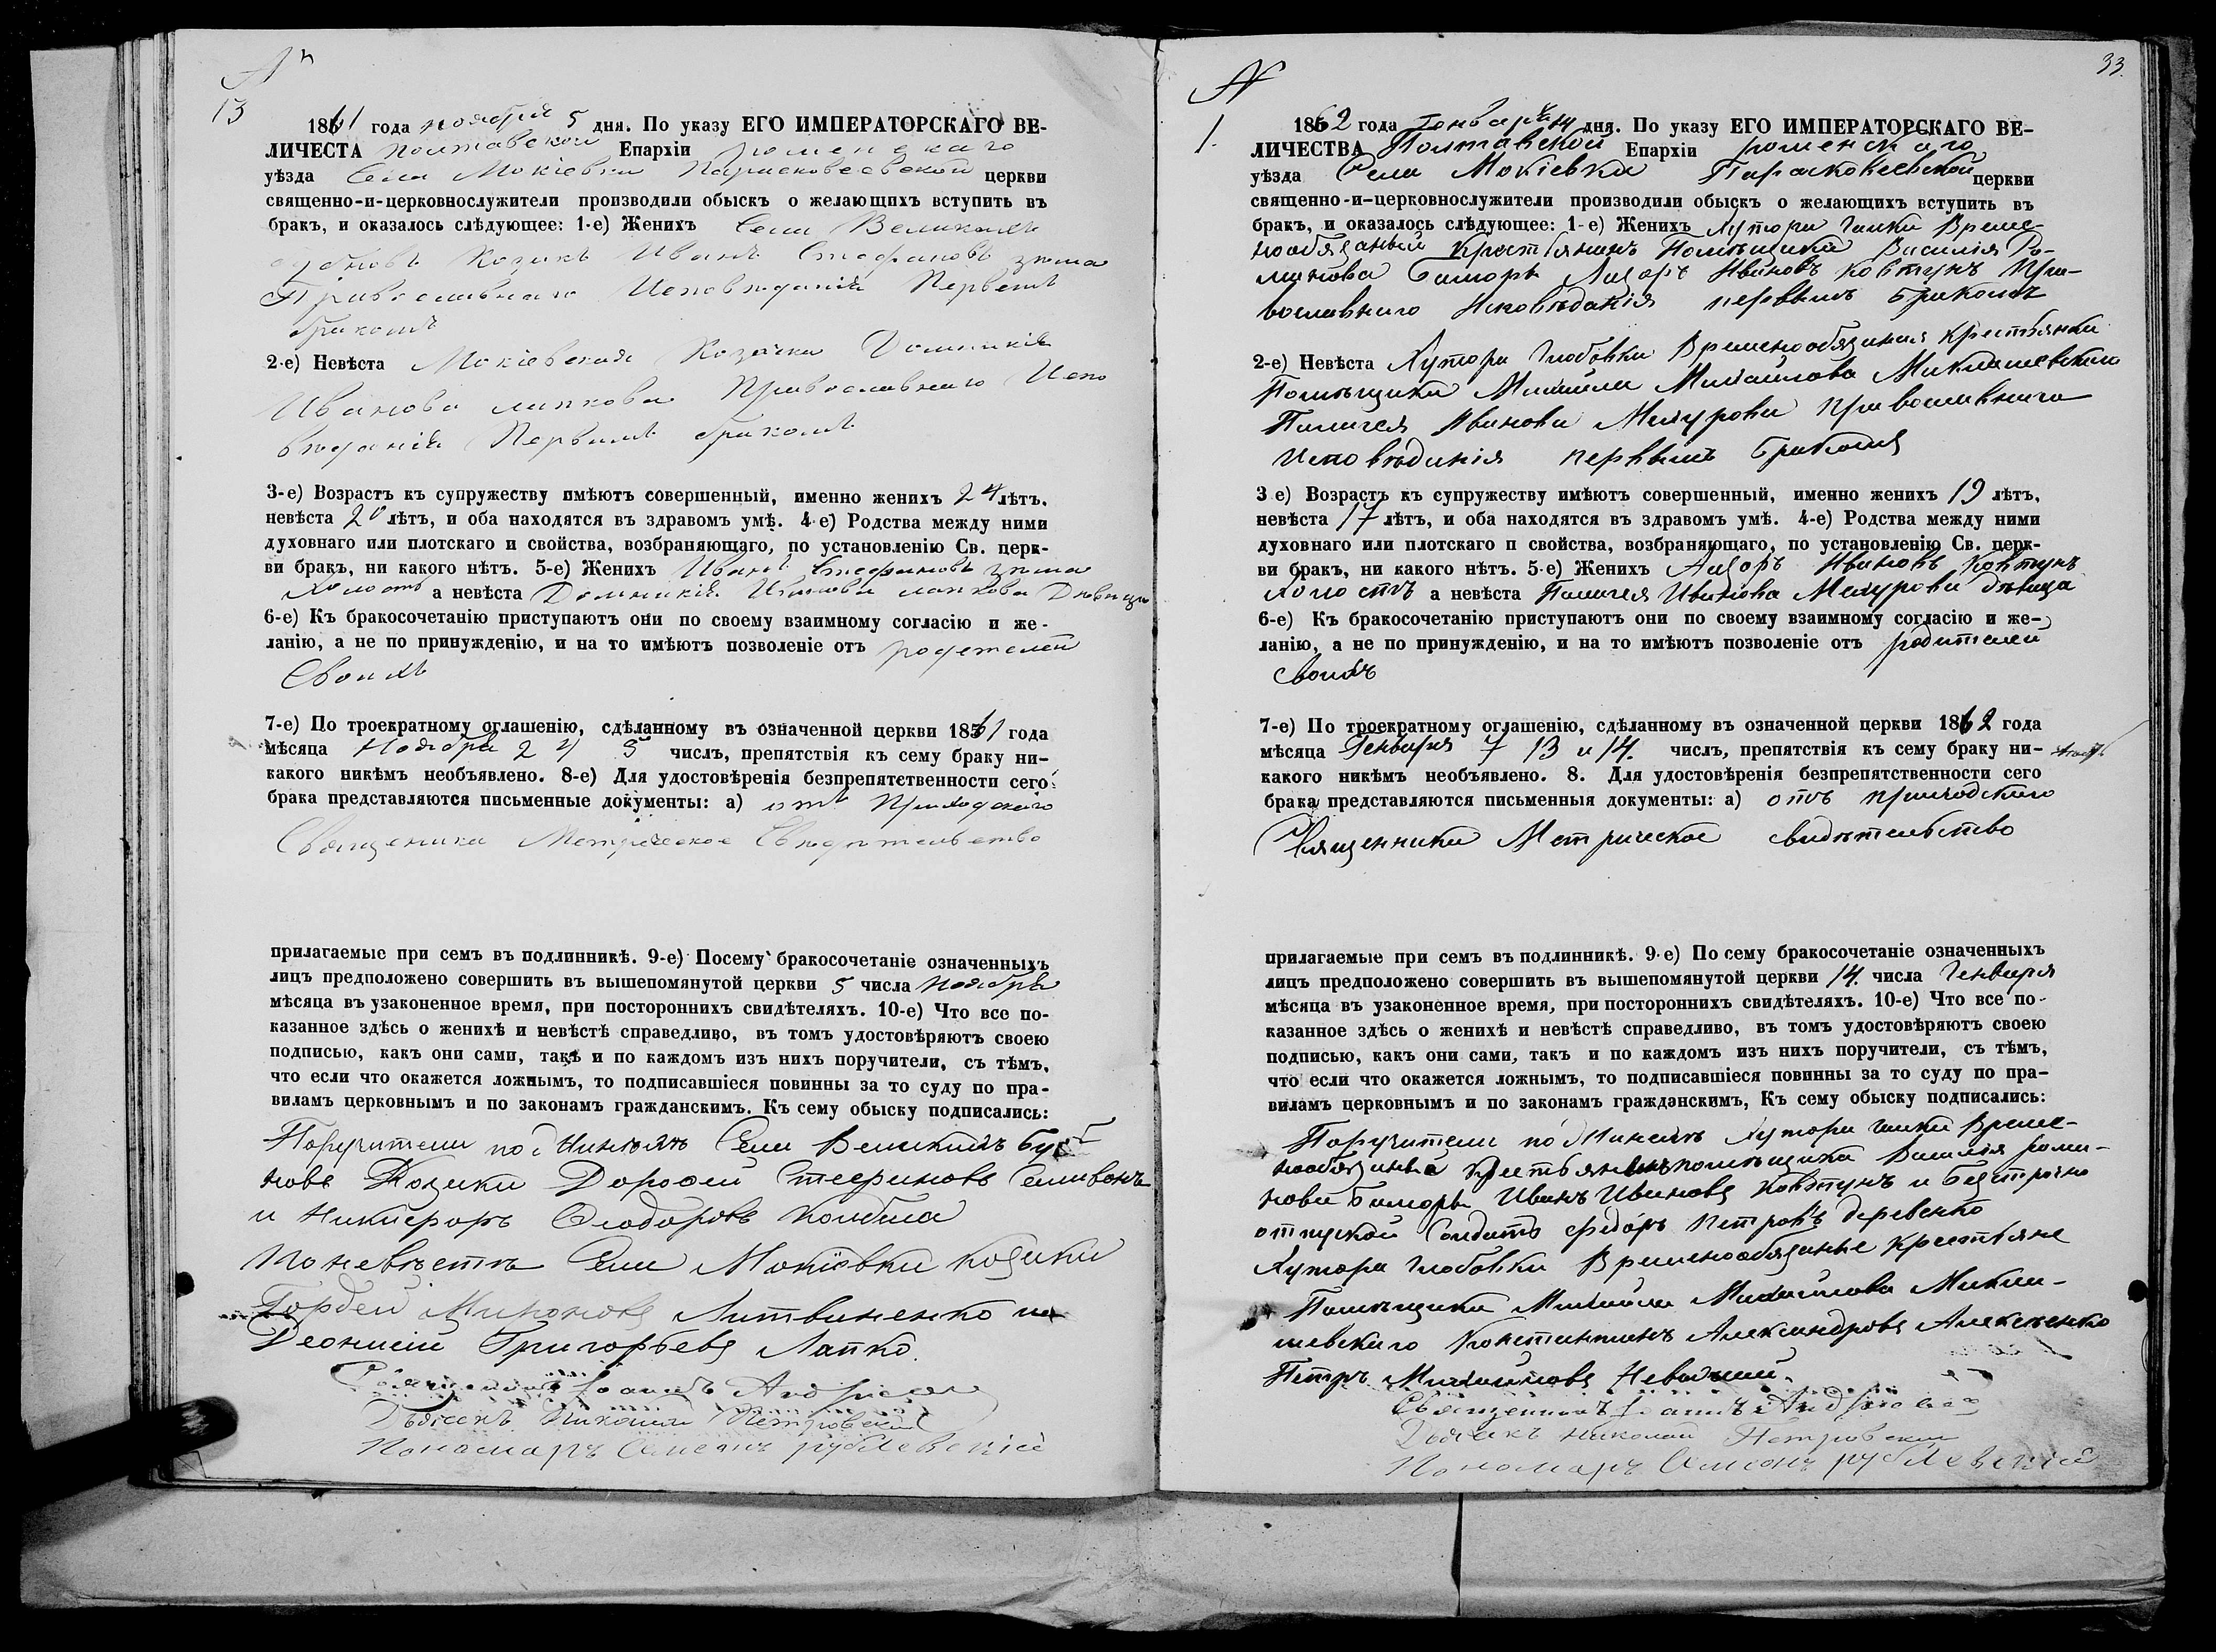 №
13
1861 года ноября 5 дня. По указу ЕГО ИМПЕРАТОРСКАГО ВЕ-
ЛИЧЕСТА Полтавской Епархіи роменскаго
уѣзда Села Мокіевки Парасковеевской церкви
священно-и-церковнослужители производили обыскъ о желающихъ вступить въ
бракъ, и оказалось слѣдующее: 1-е) Женихъ Села Великихъ
Козакъ Иванъ Стефановъ
Православнаго Исповѣданія Первымъ
бракомъ
2-е) Невѣста Мокіевская Козачка Домникія
Иванова лапкова Православнаго Испо
вѣданія Первымъ бракомъ
3-е) Возрастъ къ супружеству имѣютъ совершенный, именно женихъ 24 лѣтъ,
невѣста 20 лѣтъ, и оба находятся въ здравомъ умѣ. 4-е) Родства между ними
духовнаго или плотскаго и свойства, возбраняющаго, по установленію Св. церк-
ви бракъ, ни какого нѣтъ. 5-е) Женихъ Иванъ Стефановъ
Холостъ а невѣста Домникія Иванова лапкова Дѣвица
6-е) Къ бракосочетанію приступаютъ они по своему взаимному согласію и же-
ланію, а не по принужденію, и на то имѣютъ позволеніе отъ родетелей
Своихъ
7-е) По троекратному оглашенію, сдѣланному въ означенной церкви 1861 года
мѣсяца Ноября 2 4 5 числъ, препятствія къ сему браку ни-
какого никѣмъ необъявлено. 8-е) Для удостовѣренія безпрепятственности сего
брака представляются письменные документы: а) отъ Приходскаго
Священика Метрическое Свидѣтельство
прилагаемые при семъ въ подлинникѣ. 9-е) Посему бракосочетаніе означенныхъ
лицъ предположено совершить въ вышепомянутой церкви 5 числа Ноября
мѣсяца въ узаконенное время, при постороннихъ свидѣтеляхъ. 10-е) Что все по-
казанное здѣсь о женихѣ и невѣстѣ справедливо, въ томъ удостовѣряютъ своею
подписью, какъ они сами, такъ и по каждомъ изъ нихъ поручители, съ тѣмъ,
что если что окажется ложнымъ, то подписавшіеся повинны за то суду по пра-
виламъ церковнымъ и по законамъ гражданскимъ. Къ сему обыску подписались:
Поручители по Села Великихъ
Козаки Дорофей Стефановъ
и Никифоръ
По невѣстѣ Села Мокіевки козаки
Гордей Мироновъ Литвиненко и
Деонисій Григорьевъ Лапко.
Священникъ Іоаннъ
Дьячекъ Николай Петровскій
Пономарь рублевскій
33.
№
1.
1862 года Генваря 14 дня. По указу ЕГО ИМПЕРАТОРСКАГО ВЕ-
ЛИЧЕСТВА Полтавской Епархіи роменскаго
уѣзда Села Мокіевки Параскокеевской церкви
священно-и-церковнослужители производили обыскъ о желающихъ вступить въ
бракъ, и оказалось слѣдующее: 1-е) Женихъ Хутора Галки Време-
нообязаный Крестьянинъ Помѣщика Василія Ро-
манова Ивановъ Ковтунъ Пра-
вославнаго Исповѣданія первымъ Бракомъ
2-е) Невѣста Хутора Глобовки Временообязаная Крестьянка
Помѣщика Михаила Михайлова Миклашевскаго
Пелагея Иванова Мазурова Православнаго
Исповѣданія первымъ Бракомъ
3 е) Возрастъ къ супружеству имѣютъ совершенный, именно женихъ 19 лѣтъ,
невѣста 17 лѣтъ, и оба находятся въ здравомъ умѣ. 4-е) Родства между ними
духовнаго или плотскаго п свойства, возбраняющаго, по установленію Св. церк-
ви бракъ, ни какого нѣтъ. 5-е) Женихъ Ивановъ Ковтунъ
Холостъ а невѣста Пелагея Иванова Мазурова дѣвица
6-е) Къ бракосочетанію приступаютъ они по своему взаимному согласію и же-
ланію, а не по принужденію, и на то имѣютъ позволеніе отъ родителей
Своихъ
7-е) По троекратному оглашенію, сдѣланному въ означенной церкви 1862 года
мѣсяца Генваря 7 13 и 14. числъ, препятствія къ сему браку ни-
какого никѣмъ необъявлено. 8. Для удостовѣренія безпрепятственности сего
брака представляются письменныя документы: а) отъ приходскаго
Священника Метрическое свидѣтельство
прилагаемые при семъ въ подлинникѣ. 9-е) По сему бракосочетаніе означенныхъ
лицъ предположено совершить въ вышепомянутой церкви 14. числа Генваря
мѣсяца въ узаконенное время, при постороннихъ свидѣтеляхъ. 10-е) Что все по-
казанное здѣсь о женихѣ и невѣстѣ справедливо, въ томъ удостовѣряютъ своею
подписью, какъ они сами, такъ и по каждомъ изъ нихъ поручители, съ тѣмъ,
что если что окажется ложнымъ, то подписавшіеся повинны за то суду по пра-
виламъ церковнымъ и по законамъ гражданскимъ, Къ сему обыску подписались:
Поручители по Хутора Галки Време-
помѣщика Василія Рома-
нова Иванъ Ивановъ Ковтунъ и безстрочно
отпуской Солдатъ Федоръ Петровъ деревенко
Хутора Глобовки Временообязаные Крестьяне
Помѣщика Михаила Михайлова Микла-
шевскаго Константинъ Александровъ Алексѣенко
Петръ Михайловъ
Священникъ Іоаннъ
Дьячекъ Николай Петровскій
Пономарь рублевскій